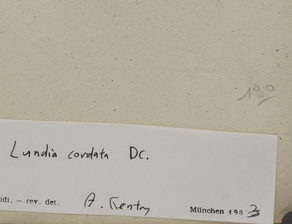 Lundia cordata DC.
idi, – rev. det. A. Gentry
München 198